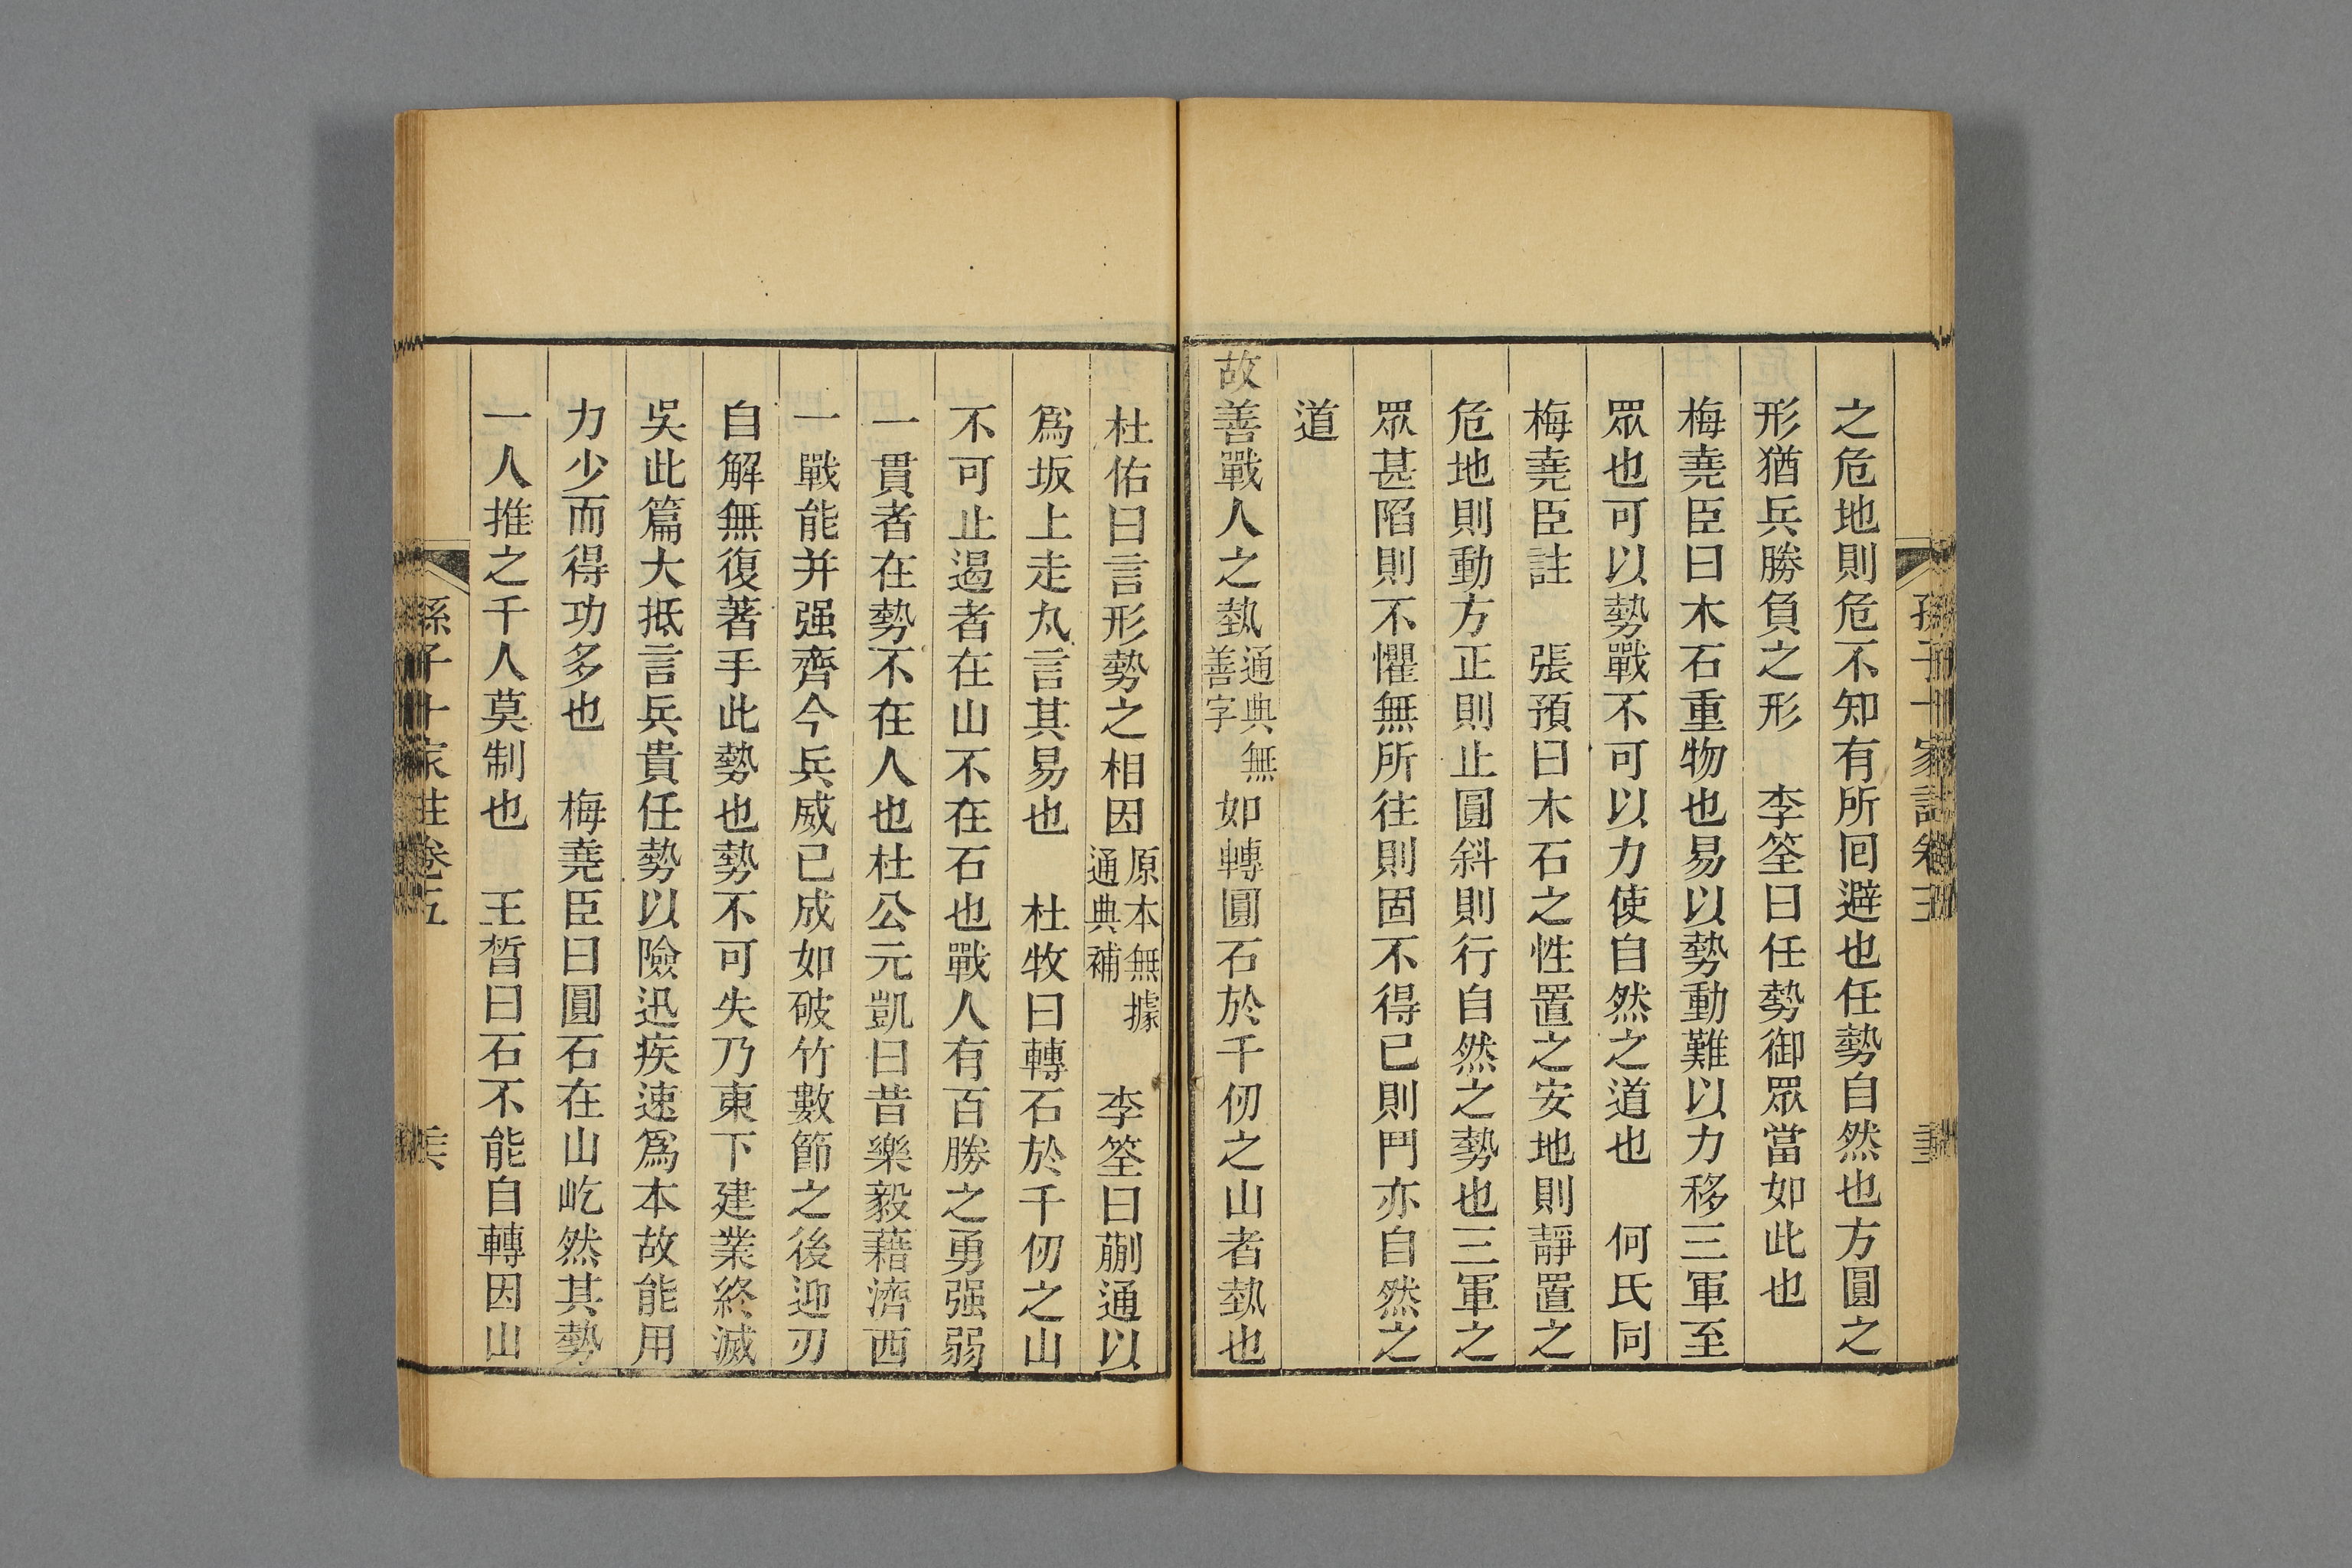 之危地則危不知有所回避也任勢自然也方圓之
形猶兵勝負之形　李筌曰任勢御眾當如此也
梅堯臣曰木石重物也易以勢動難以力移三軍至
眾也可以勢戰不可以力使自然之道也　何氏同
梅堯臣註　張預曰木石之性置之安地則靜置之
危地則動方正則止圓斜則行自然之勢也三軍之
眾甚陷則不懼無所往則固不得已則鬥亦自然之
道
故善戰人之埶通典無善字如轉圓石於千仞之山者埶也
杜佑曰言形勢之相因原本無據通典補　李筌曰蒯通以
爲坂上走丸言其易也　杜牧曰轉石於千仞之山
不可止遏者在山不在石也戰人有百勝之勇强弱
一貫者在勢不在人也杜公元凱曰昔樂毅藉濟西
一戰能并强齊今兵威已成如破竹數節之後迎刃
自解無復著手此勢也勢不可失乃東下建業終滅
吳此篇大抵言兵貴任勢以險迅疾速爲本故能用
力少而得功多也　梅堯臣曰圓石在山屹然其勢
一人推之千人莫制也　王晳曰石不能自轉因山
孫子十家註卷五